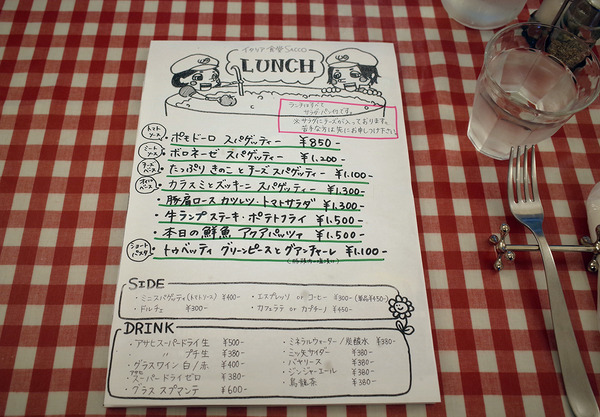 イタリア食堂 SACCO
LUNCH
ランチはすべて
サラダ・パン付です。
※サラダにチーズが入っております。
苦手な方は先にお申しつけ下さい。
トマトソース ・ポモドーロ スパゲッティー ¥850-
ミートソース ・ボロネーゼ スパゲッティー ¥1.200-
チーズベース ・たっぷり きのこ と チーズ スパゲッティー ¥1.100-
オイルベース ・カラスミとズッキーニ スパゲッティー ¥1.300-
・豚肩ロース カツレツ・トマトサラダ ¥1.300-
・牛ランプステーキ・ポテトフライ ¥1.500-
・本日の鮮魚 アクアパッツァ ¥1.500-
ショートパスタ ・トゥベッティ グリーンピースとグアンチャーレ ¥1.100-
SIDE
・ミニスパゲッティ(トマトソース) ¥400-
・エスプレッソ or コーヒー ¥300-(単品¥450-)
・ドルチェ ¥300-
・カフェラテ or カプチーノ ¥450-
DRINK
・アサヒスーパードライ 生 ¥500-
・ 〃 プチ生 ¥380-
・グラスワイン 白/赤 ¥400-
・アサヒ スーパードライゼロ ¥380-
・グラス スプマンテ ¥600-
・ミネラルウォーター/炭酸水 ¥330-
・三ッ矢サイダー ¥380-
・バヤリース ¥380-
・ジンジャーエール ¥380-
・烏龍茶 ¥380-